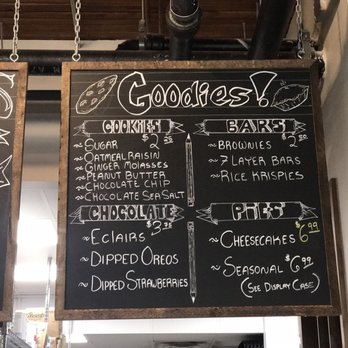 Goodies!
COOKIES
~ SUGAR
~ OATMEAL RAISIN
~ GINGER MOLASSES
~ PEANUT BUTTER
~ CHOCOLATE CHIP
~ CHOCOLATE SEA SALT
CHOCOLATE
~ ECLAIRS
~ DIPPED OREOS
~ DIPPED STRAWBERRIES
BARS
~ BROWNIES
~ 7 LAYER BARS
~ RICE KRISPIES
PIES
~ CHEESECAKES $6.99
~ SEASONAL $6.99
(SEE DISPLAY CASE)